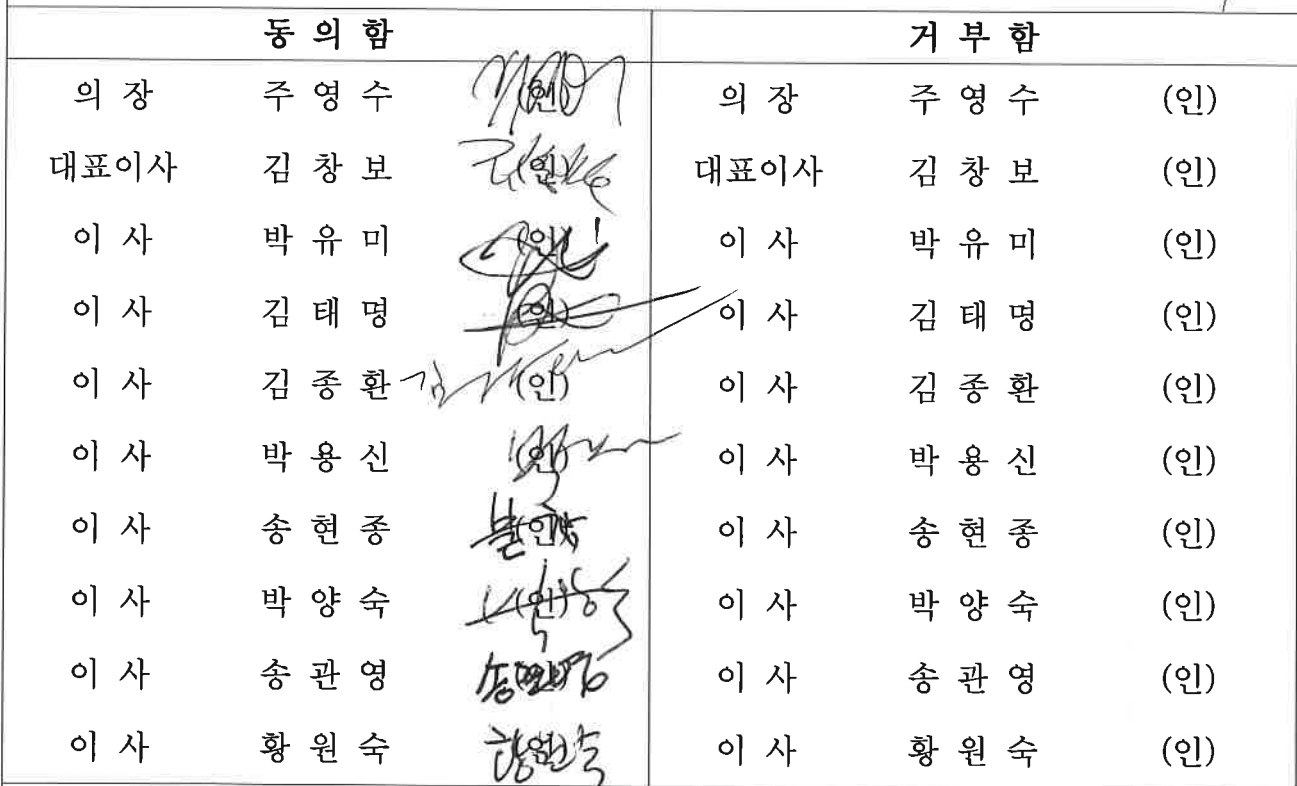 동 의 함 거 부 함
의 장 주 영 수 (인) 의 장 주 영 수 (인)
대표이사 김 창 보 (인) 대표이사 김 창 보 (인)
이 사 박 유 미 (인) 이 사 박 유 미 (인)
이 사 김 태 명 (인) 이 사 김 태 명 (인)
이 사 김 종 환 김 (인) 이 사 김 종 환 (인)
이 사 박 용 신 (인) 이 사 박 용 신 (인)
이 사 송 현 종 불참 (인) 이 사 송 현 종 (인)
이 사 박 양 숙 (인) 이 사 박 양 숙 (인)
이 사 송 관 영 송관영 (인) 이 사 송 관 영 (인)
이 사 황 원 숙 황원숙 (인) 이 사 황 원 숙 (인)